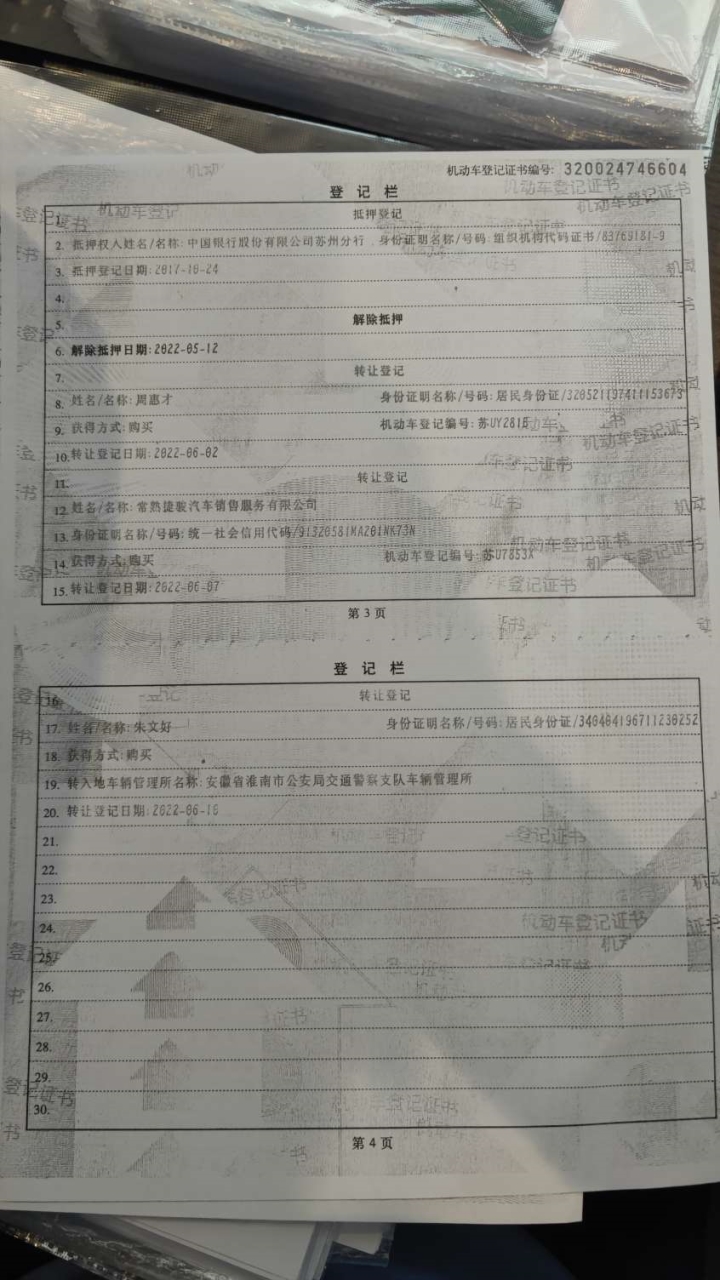 机动车登记证书编号: 320024746604
登 记 栏
1. 抵押登记
2. 抵押权人姓名/名称: 中国银行股份有限公司苏州分行 身份证明名称/号码: 组织机构代码证书/83769181-9
3. 抵押登记日期: 2017-10-24
4.
5. 解除抵押
6. 解除抵押日期: 2022-05-12
7. 转让登记
8. 姓名/名称: 周惠才 身份证明名称/号码: 居民身份证/320521197411153673
9. 获得方式: 购买 机动车登记编号:
10. 转让登记日期: 2022-06-02
11. 转让登记
12. 姓名/名称: 常熟捷骏汽车销售服务有限公司
13. 身份证明名称/号码: 统一社会信用代码/91320581MA201NK73N
14. 获得方式: 购买 机动车登记编号: 苏U7853X
15. 转让登记日期: 2022-06-07
第 3 页
登 记 栏
16. 转让登记
17. 姓名/名称: 朱文好 身份证明名称/号码: 居民身份证/340404196711230252
18. 获得方式: 购买
19. 转入地车辆管理所名称: 安徽省淮南市公安局交通警察支队车辆管理所
20. 转让登记日期:
21.
22.
23.
24.
25.
26.
27.
28.
29.
30.
第 4 页